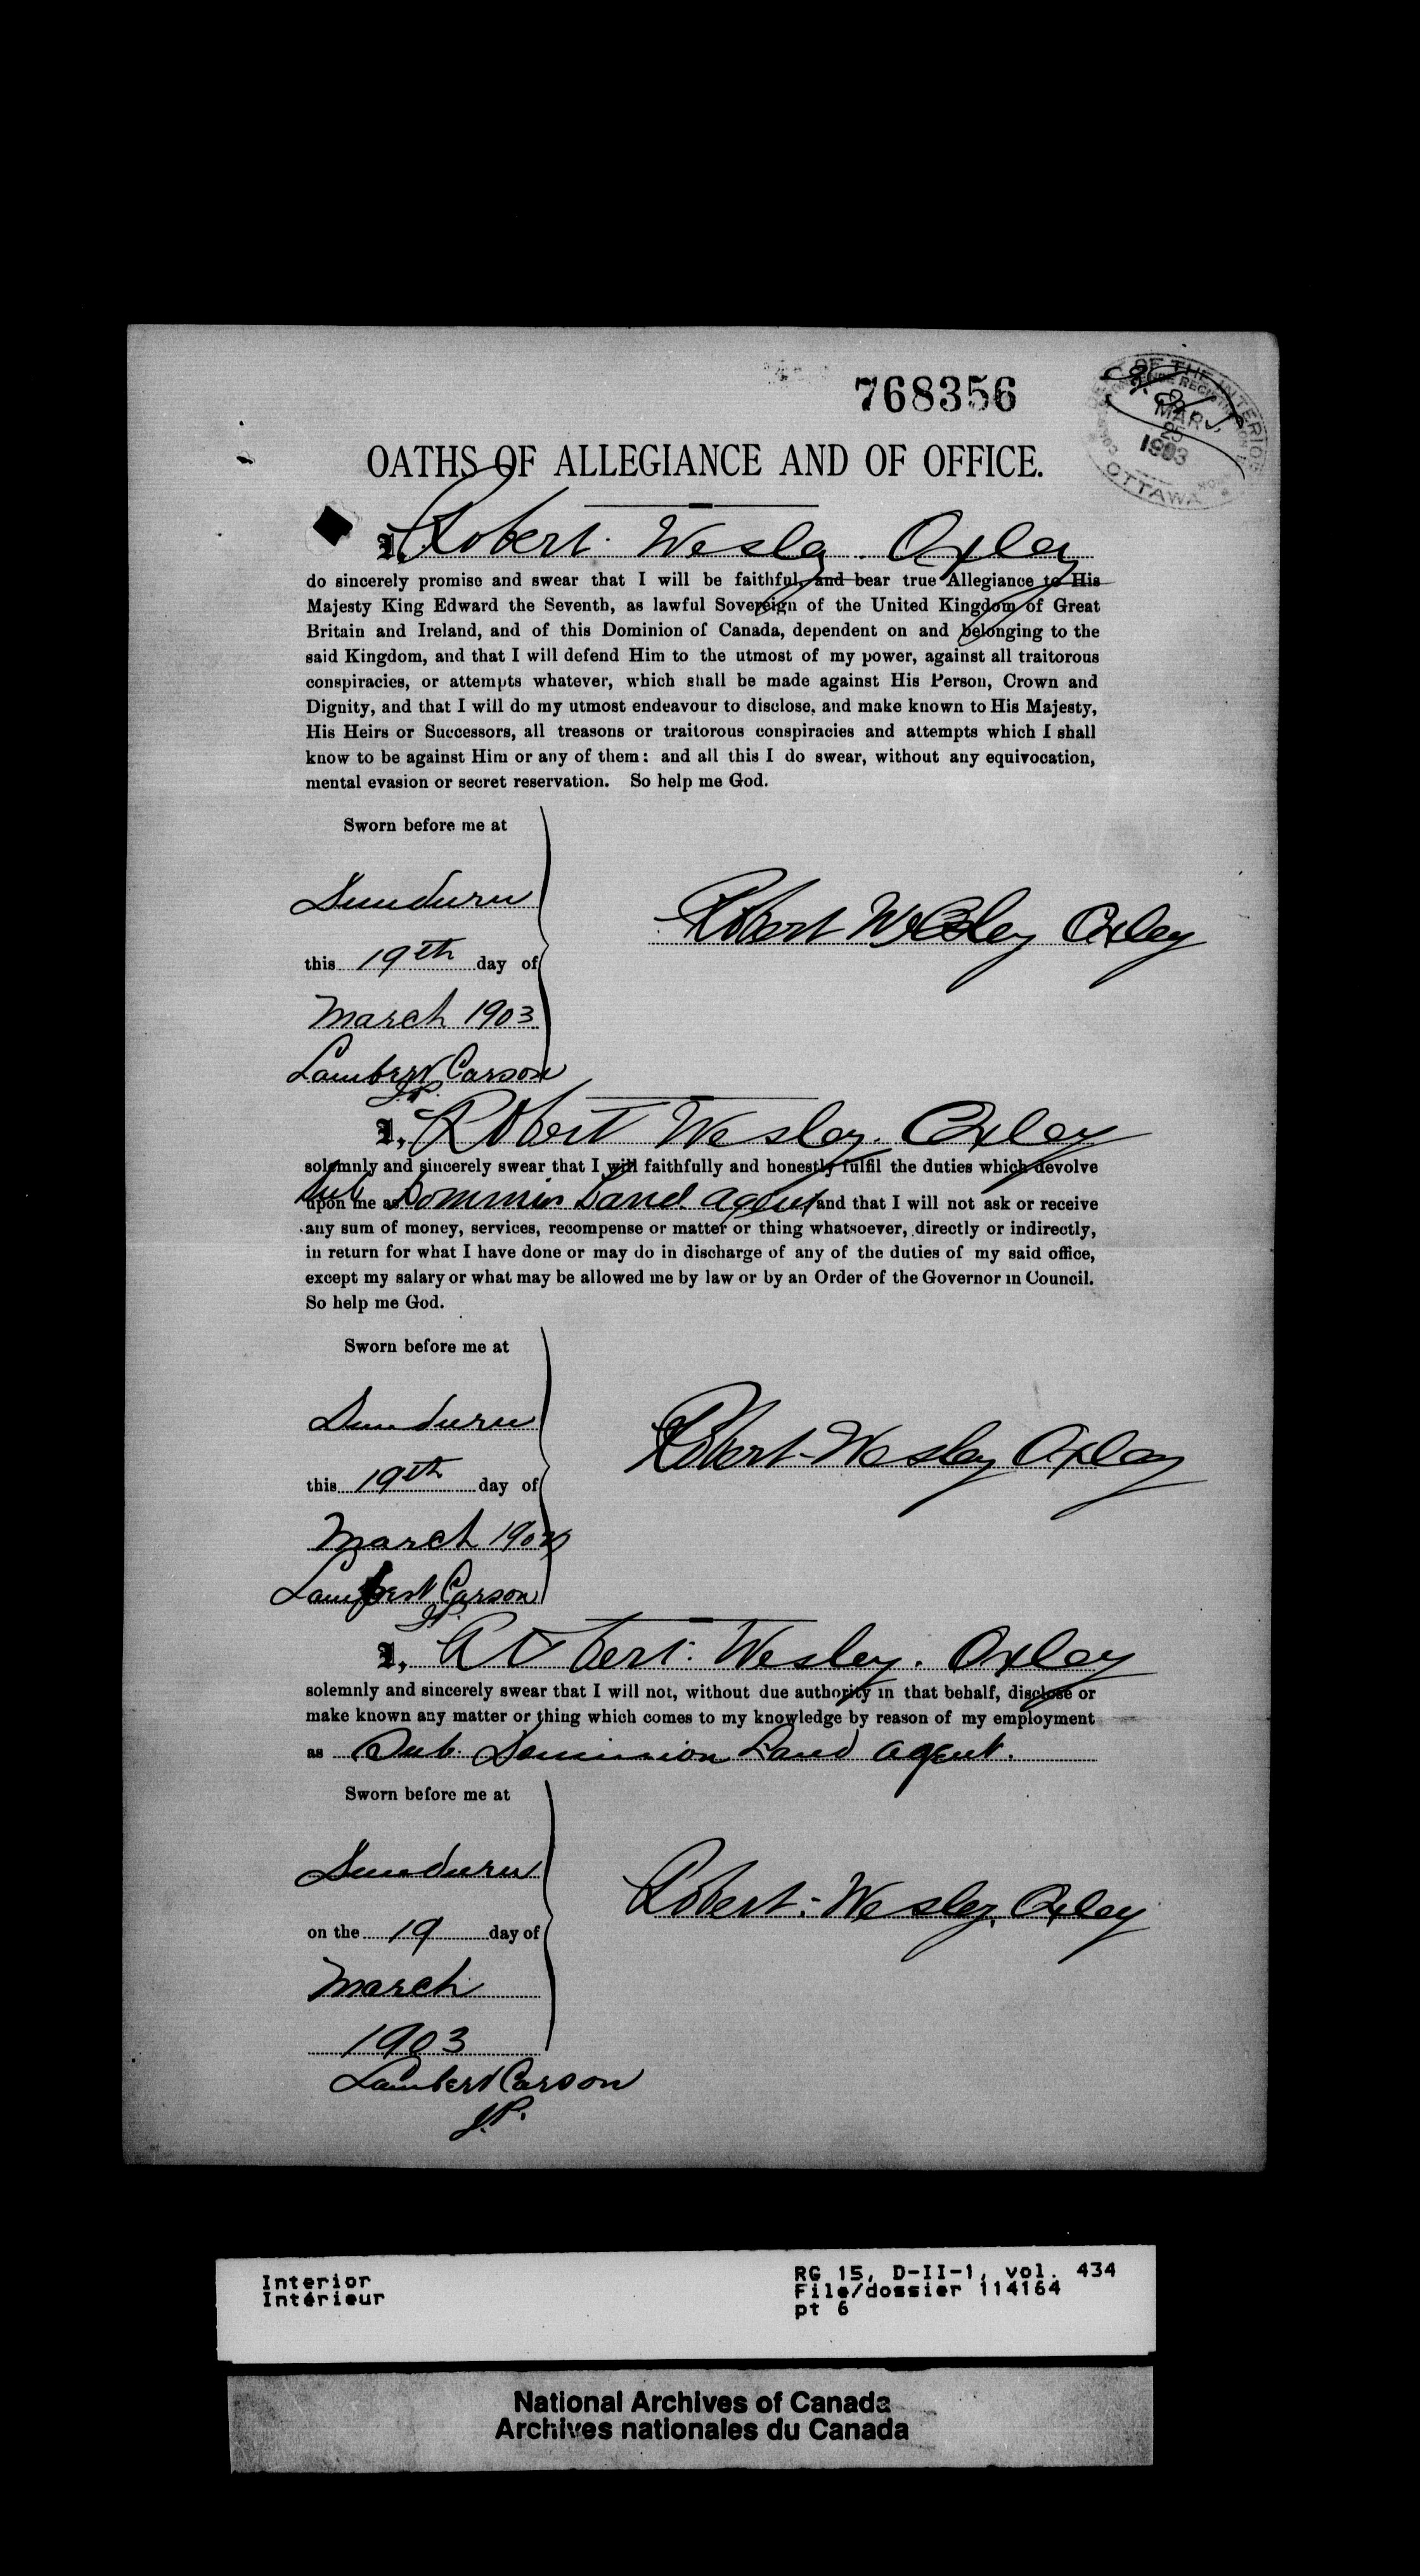 768356
DEPT OF THE INTERIOR
MAR
25
1903
OTTAWA
OATHS OF ALLEGIANCE AND OF OFFICE.
I, Robert Wesley Oxley
do sincerely promise and swear that I will be faithful, and bear true Allegiance to His
Majesty King Edward the Seventh, as lawful Sovereign of the United Kingdom of Great
Britain and Ireland, and of this Dominion of Canada, dependent on and belonging to the
said Kingdom, and that I will defend Him to the utmost of my power, against all traitorous
conspiracies, or attempts whatever, which shall be made against His Person, Crown and
Dignity, and that I will do my utmost endeavour to disclose, and make known to His Majesty,
His Heirs or Successors, all treasons or traitorous conspiracies and attempts which I shall
know to be against Him or any of them: and all this I do swear, without any equivocation,
mental evasion or secret reservation. So help me God.
Sworn before me at
Dundurn
Robert Wesley Oxley
this 19th day of
March 1903
Lambert Carson
J.P.
I, Robert Wesley Oxley
solemnly and sincerely swear that I will faithfully and honestly fulfil the duties which devolve
upon me as Sub Dominion Land Agent and that I will not ask or receive
any sum of money, services, recompense or matter or thing whatsoever, directly or indirectly,
in return for what I have done or may do in discharge of any of the duties of my said office,
except my salary or what may be allowed me by law or by an Order of the Governor in Council.
So help me God.
Sworn before me at
Dundurn
Robert Wesley Oxley
this 19th day of
March 1903
Lambert Carson
J.P.
I, Robert Wesley Oxley
solemnly and sincerely swear that I will not, without due authority in that behalf, disclose or
make known any matter or thing which comes to my knowledge by reason of my employment
as Sub Dominion Land Agent.
Sworn before me at
Dundurn
Robert Wesley Oxley
on the 19 day of
March
1903
Lambert Carson
J.P.
Interior
Intérieur
RG 15, D-II-1, vol. 434
File/dossier 114164
pt 6
National Archives of Canada
Archives nationales du Canada